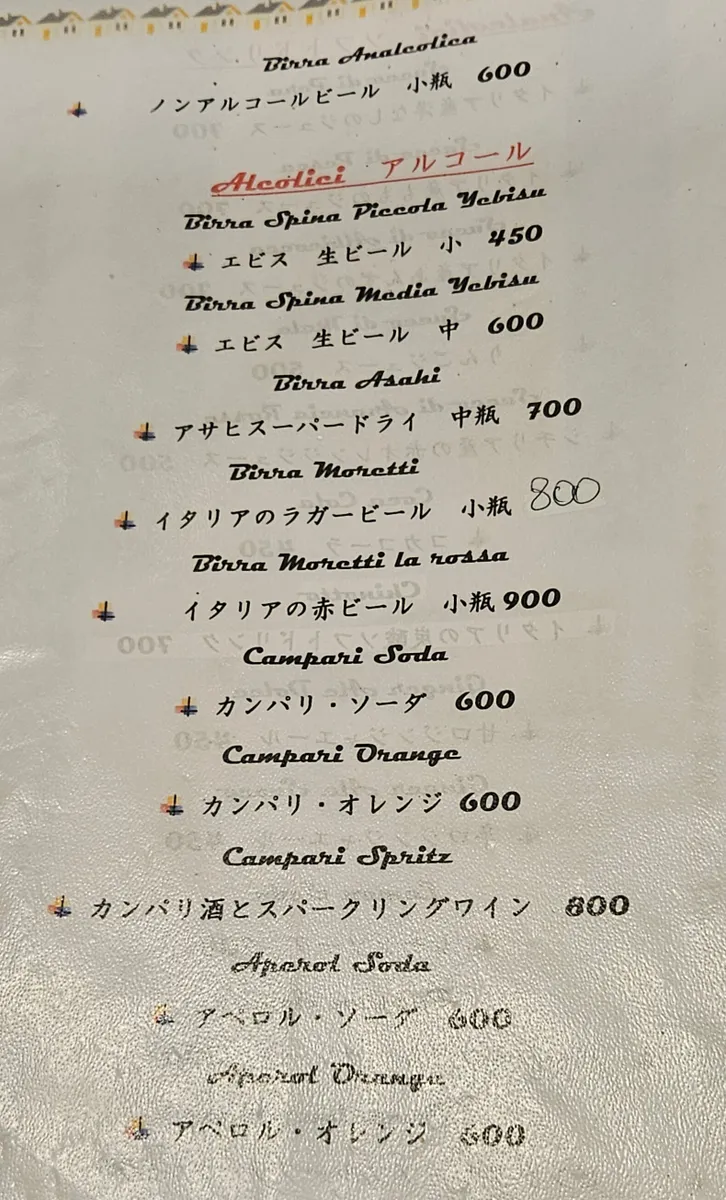 Birra Analcolica
ノンアルコールビール 小瓶 600
Alcolici アルコール
Birra Spina Piccola Yebisu
エビス 生ビール 小 450
Birra Spina Media Yebisu
エビス 生ビール 中 600
Birra Asahi
アサヒスーパードライ 中瓶 700
Birra Moretti
イタリアのラガービール 小瓶 800
Birra Moretti la rossa
イタリアの赤ビール 小瓶 900
Campari Soda
カンパリ・ソーダ 600
Campari Orange
カンパリ・オレンジ 600
Campari Spritz
カンパリ酒とスパークリングワイン 800
Aperol Soda
アペロル・ソーダ 600
Aperol Orange
アペロル・オレンジ 600